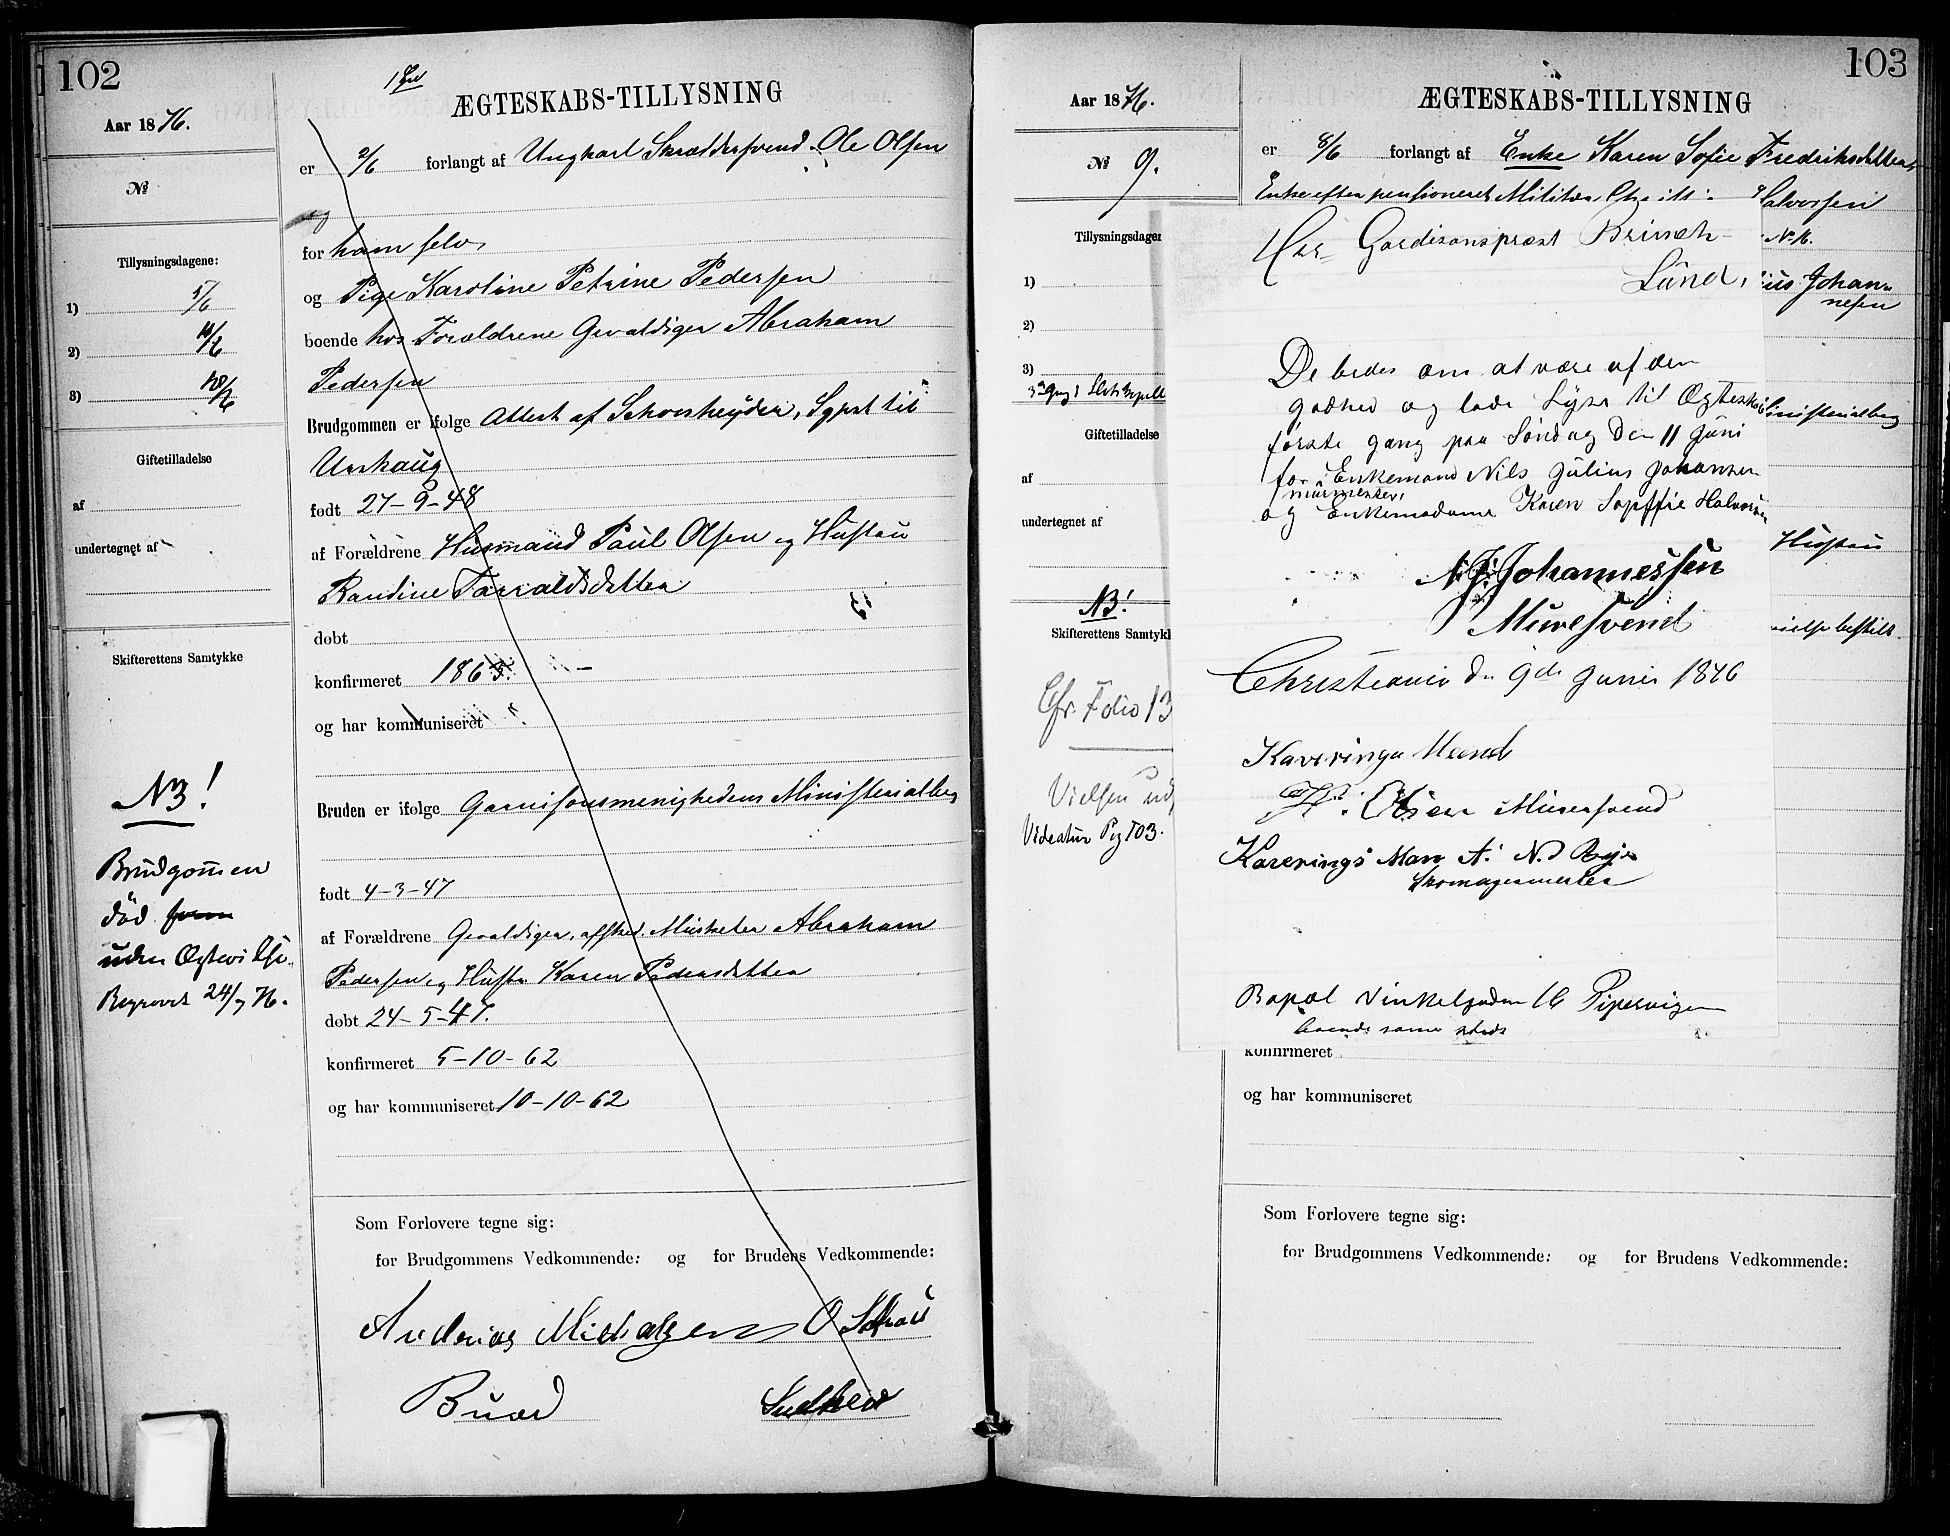 102
ÆGTESKABS-TILLYSNING
Aar 1876.
er 2/6 forlangt af Ungkarl Skræddersvend Ole Olsen
No
og
for ham selv
Tillysningsdagene:
og Pige Karoline Petrine Pedersen
1) 5/6
boende hos Forældrene Gevaldiger Abraham
2)
Pedersen
3)
Brudgommen er ifølge Attest af
Giftetilladelse
af
født 27-9-48
undertegnet af
af Forældrene Husmand Paul Olsen og Hustru
Randine Tarraldsdatter
døbt
Skifterettens Samtykke
konfirmeret 1863.
og har kommuniseret
NB!
Bruden er ifølge Garnisonsmenighedens Ministerialbog
Brudgommen
død
uden Ægtevielse.
Begravet 24/7 76.
født 4-3-47
af Forældrene Gevaldiger, afsked. Musketer Abraham
Pedersen og Hustru Karen Pedersdatter
døbt 24-5-47.
konfirmeret 5-10-62
og har kommuniseret 10-10-62
Som Forlovere tegne sig:
for Brudgommens Vedkommende: og for Brudens Vedkommende:
Andreas
103
ÆGTESKABS-TILLYSNING
Aar 1876.
er 8/6 forlangt af Enke Karen Sofie Fredriksdatter,
No 9.
Enke efter pensioneret Militær Halvorsen
Tillysningsdagene
1)
2)
3)
3die Gang i Slotskapell
Giftetilladelse
af
undertegnet af
NB!
Skifterettens Samtykk
Cfr. Folio 13
Vielsen
Videatur Pag 103.
Herr Gardisonspræst Brinch
Lund,
ius Johan-
nesen
De bedes om at være af den
godhed og lade Lyse til Ægteskab
første gang paa Søndag Den 11 Juni
for Enkemand Nils Julius Johansen
og Enkemadame Karen Sopffie Halvorsen
inisterialbog
Hustru
N. J. Johannessen
Muresvend
ielse bestilt
Christiania den 9de Juni 1876
Kaveringa Mænd
Olsen Muresvend
Kaverings Man A. N.
Skomagermester
Bopæl Vinkelgaden 16 Pipervigen
boende samme steds
konfirmeret
og har kommuniseret
Som Forlovere tegne sig:
for Brudgommens Vedkommende: og for Brudens Vedkommende: